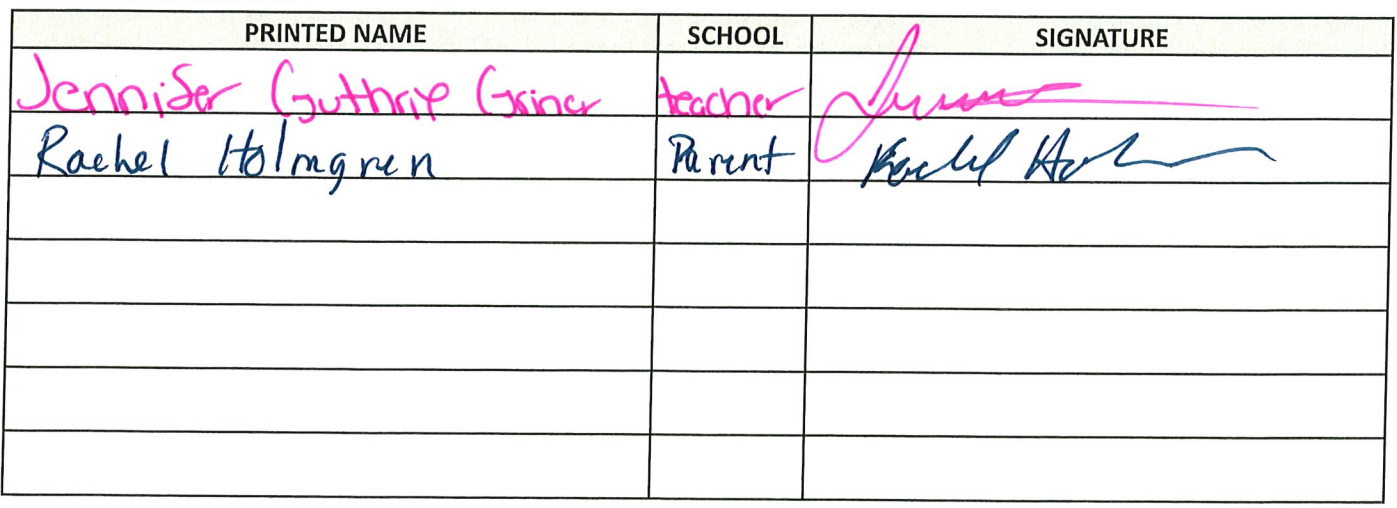 PRINTED NAME SCHOOL SIGNATURE
Jennifer Guthrie Griner teacher
Rachel Holmgren Parent Rachel